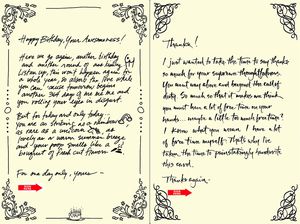 Happy Birthday, Your Awesomeness!
Here we go again, another birthday
and another round of me kissing
Listen up, this won't happen again for
a whole year, so absorb the love while
you can 'cause tomorrow begins
another 364 days of me and
you rolling your eyes in disgust.
But for today and only today
you are as striking as a
as rare as a unicorn
lovely as a warm summer breeze
and your poop smells like a
bouquet of fresh cut flowers.
For one day only, yours ~
Thanks!
I just wanted to take the time to say thanks
so much for your supreme thoughtfulness.
You went way above and beyond the call of
duty. So much so that it makes me think
you must have a lot of free time on your
hands... maybe a little too much free time?
I know what you mean. I have a lot
of free time myself. That's why I've
taken the time to painstakingly handwrite
this card.
Thanks again,